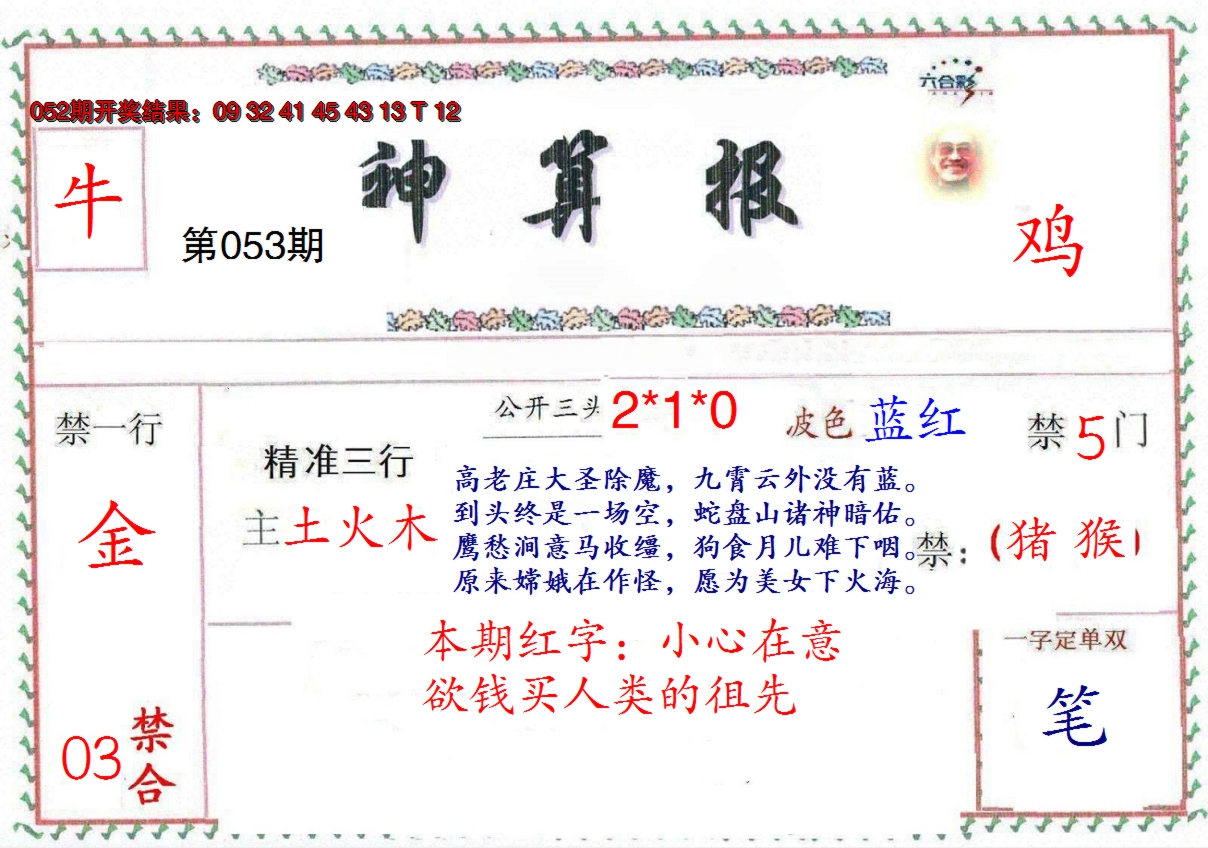 六合彩
052期开奖结果：09 32 41 45 43 13 T 12
神算报
牛
第053期
鸡
禁一行
金
03
禁合
精准三行
主土火木
公开三头
2*1*0
波色 蓝红
禁5门
高老庄大圣除魔，九霄云外没有蓝。
到头终是一场空，蛇盘山诸神暗佑。
鹰愁涧意马收缰，狗食月儿难下咽。
原来嫦娥在作怪，愿为美女下火海。
禁：(猪 猴)
本期红字：小心在意
欲钱买人类的徂先
一字定单双
笔